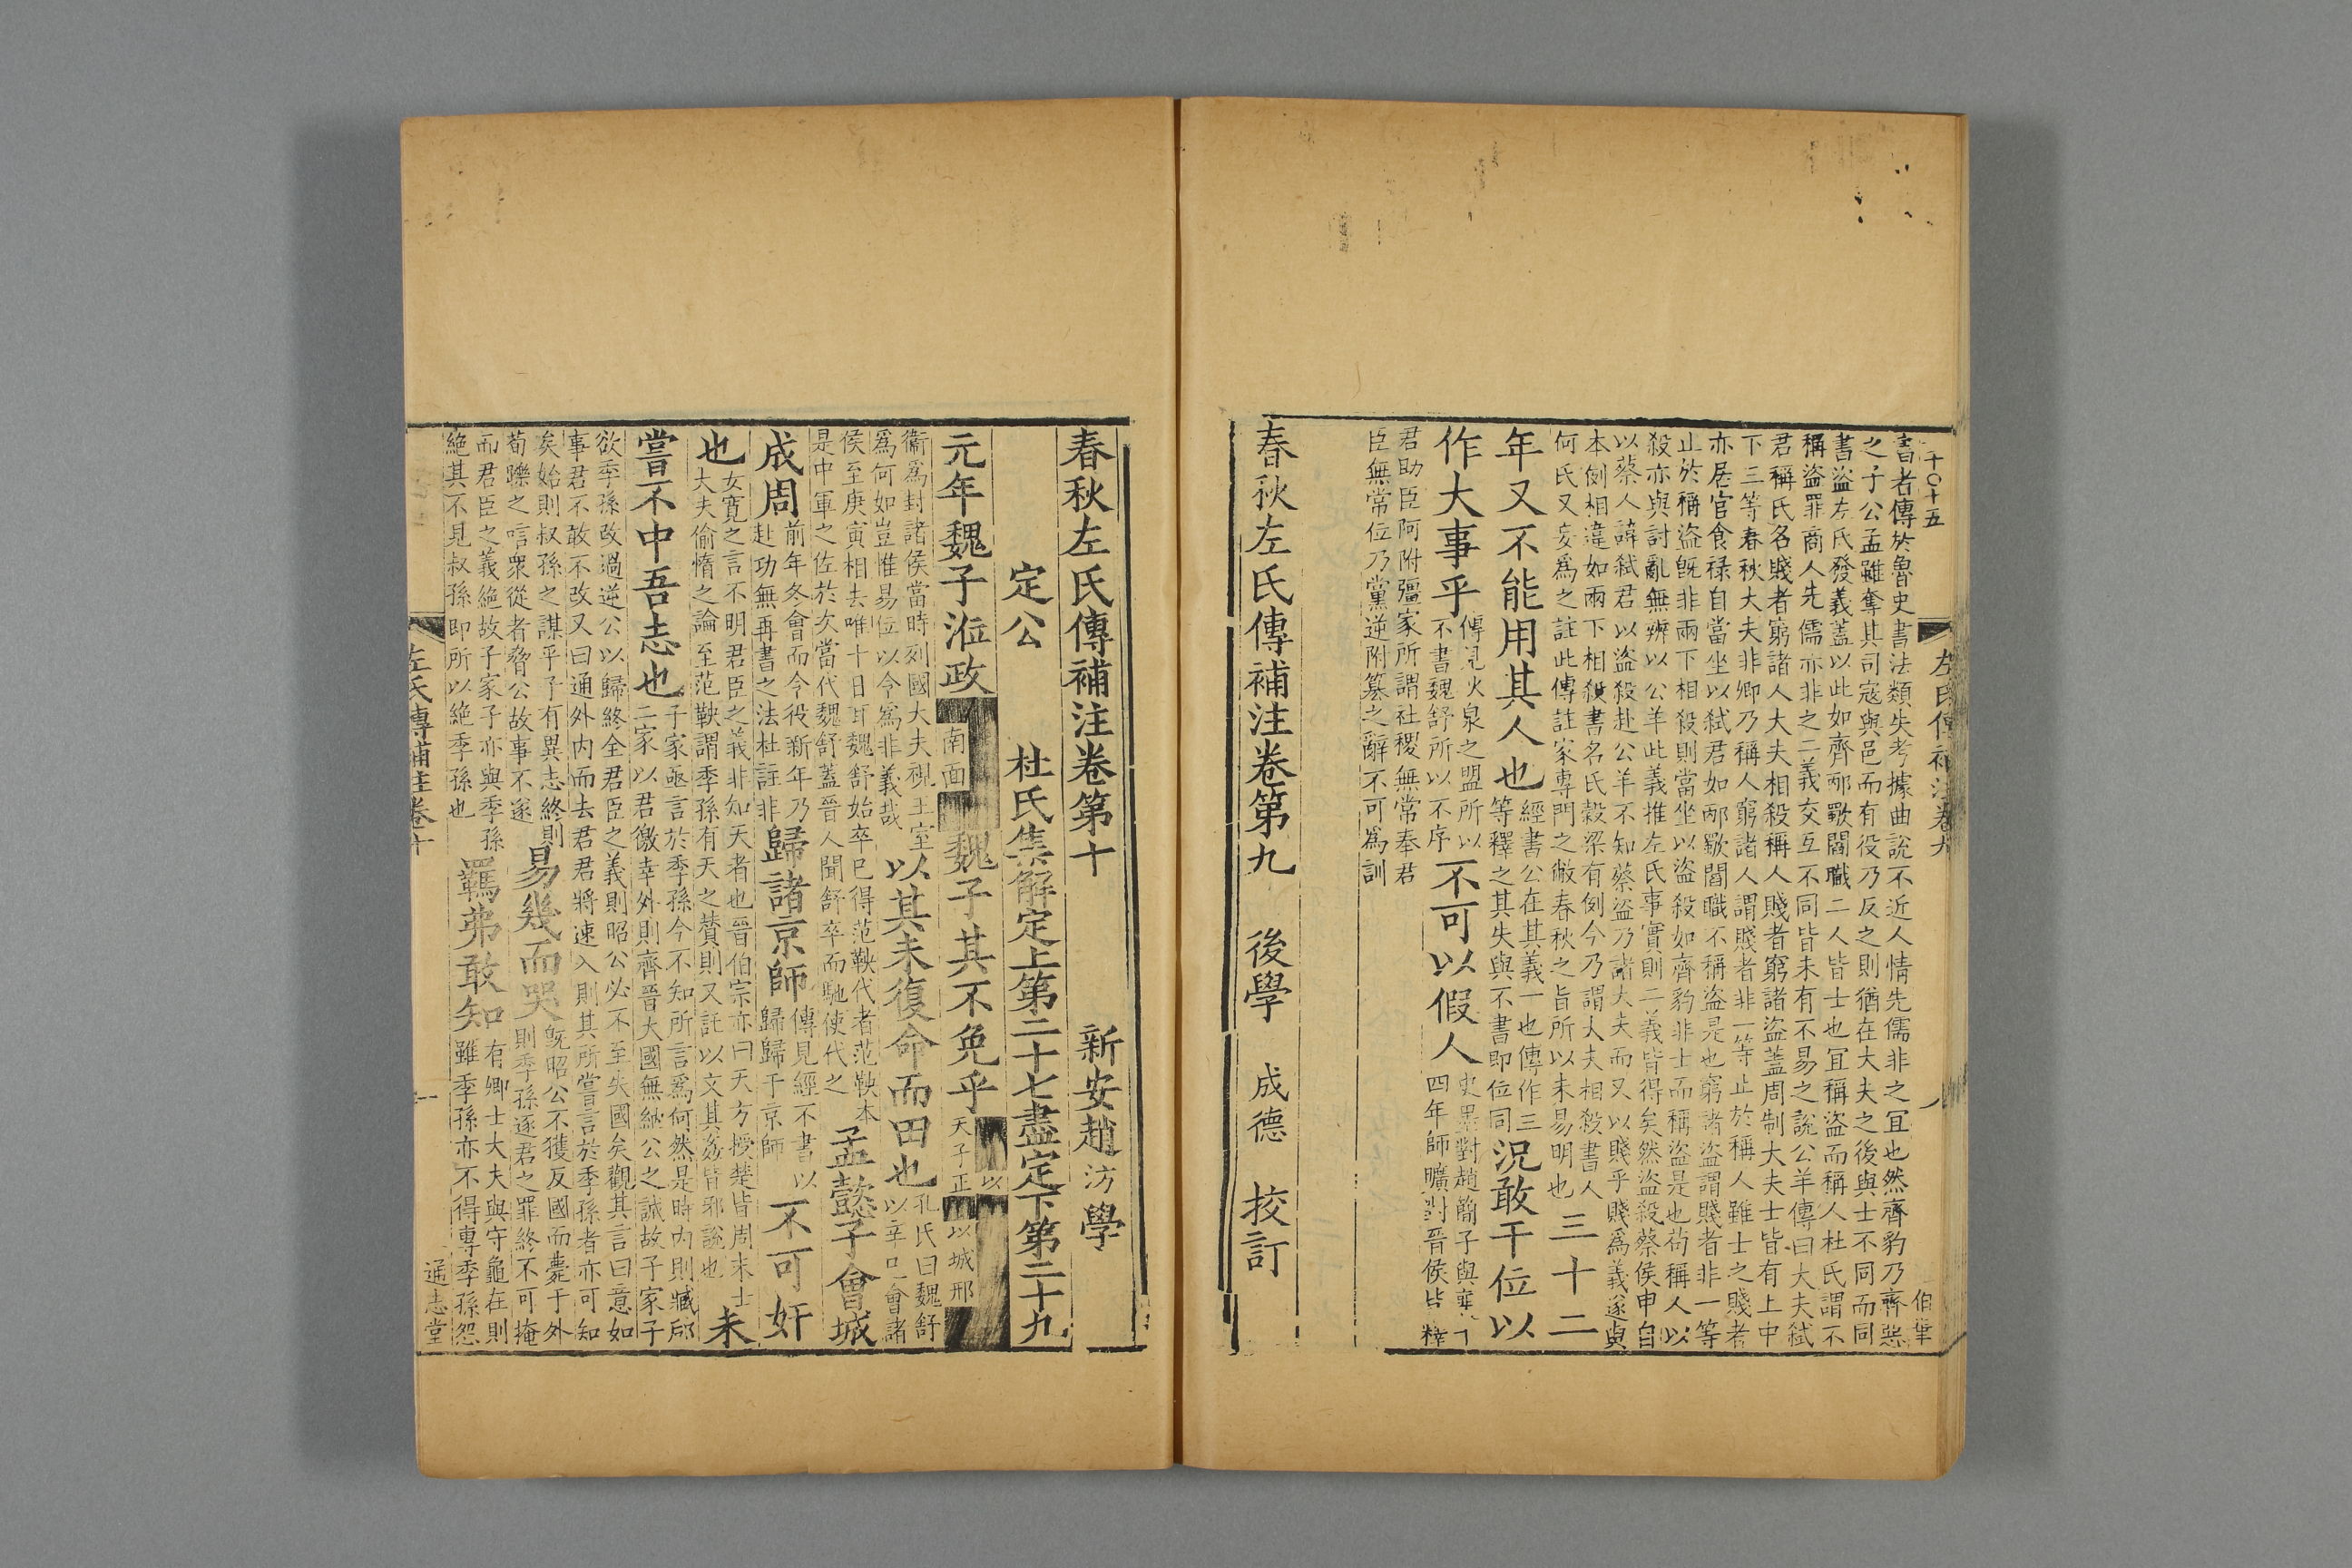 十〇十五
左氏傳補注卷九
八
書者傳於魯史書法類失考據曲說不近人情先儒非之冝也然齊豹乃齊惡
之子公孟雖奪其司寇與邑而有役乃反之則猶在大夫之後與士不同而同
書盜左氏發義蓋以此如齊邴歜閻職二人皆士也冝稱盜而稱人杜氏謂不
稱盜罪商人先儒亦非之二義交互不同皆未有不易之說公羊傳曰大夫弑
君稱氏名賤者窮諸人大夫相殺稱人賤者窮諸盜蓋周制大夫士皆有上中
下三等春秋大夫非卿乃稱人窮諸人謂賤者非一等止於稱人雖士之賤者
亦居官食祿自當坐以弑君如邴歜閻職不稱盜是也窮諸盜謂賤者非一等
止於稱盜旣非兩下相殺則當坐以盜殺如齊豹非士而稱盜是也苟稱人以
殺亦與討亂無辨以公羊此義推左氏事實則二義皆得矣然盜殺蔡侯申自
以蔡人諱弑君以盜殺赴公羊不知蔡盜乃諸大夫而又以賤乎賤爲義遂與
本例相違如兩下相殺書名氏穀梁有例今乃謂大夫相殺書人
何氏又妄爲之註此傳註家專門之敝春秋之旨所以未易明也
三十二
年又不能用其人也
經書公在其義一也傳作三
等釋之其失與不書即位同
況敢干位以
作大事乎
傳見狄泉之盟所以
不書魏舒所以不序
不可以假人
史墨對趙簡子與
四年師曠對晉侯皆釋
君助臣阿附彊家所謂社稷無常奉君
臣無常位乃黨逆附簒之辭不可爲訓
春秋左氏傳補注卷第九
後學
成德
挍訂
春秋左氏傳補注卷第十
新安趙汸學
定公
杜氏集解定上第二十七盡定下第二十九
元年魏子涖政
南面
魏子其不免乎
以
天子正
以城邢
衞爲封諸侯當時列國大夫視王室
爲何如豈惟易位以令爲非義哉
以其未復命而田也
孔氏曰魏舒
以辛巳會諸
侯至庚寅相去唯十日耳魏舒始卒巳得范鞅代者范鞅本
是中軍之佐於次當代魏舒蓋晉人聞舒卒而馳使代之
孟懿子會城
成周
前年冬會而今役新年乃
赴功無再書之法杜註非
歸諸京師
傳見經不書以
歸歸于京師
不可奸
也
女寛之言不明君臣之義非知天者也晉伯宗亦曰天方授楚皆周末士
大夫偷惰之論至范鞅謂季孫有天之贊則又託以文其姦皆邪說也
未
嘗不中吾志也
子家亟言於季孫今不知所言爲何然是時內則臧郈
二家以君徼幸外則齊晉大國無納公之誠故子家子
欲季孫改過逆公以歸終全君臣之義則昭公必不至失國矣觀其言曰意如
事君不敢不改又曰通外内而去君君將速入則其所嘗言於季孫者亦可知
矣始則叔孫之謀乎子有異志終則
荀躒之唁衆從者脅公故事不遂
易幾而哭
旣昭公不獲反國而薨于外
則季孫逐君之罪終不可掩
而君臣之義絶故子家子亦與季孫
絶其不見叔孫即所以絶季孫也
羈弗敢知
有卿士大夫與守龜在則
雖季孫亦不得專季孫怨
左氏傳補注卷十
一
通志堂